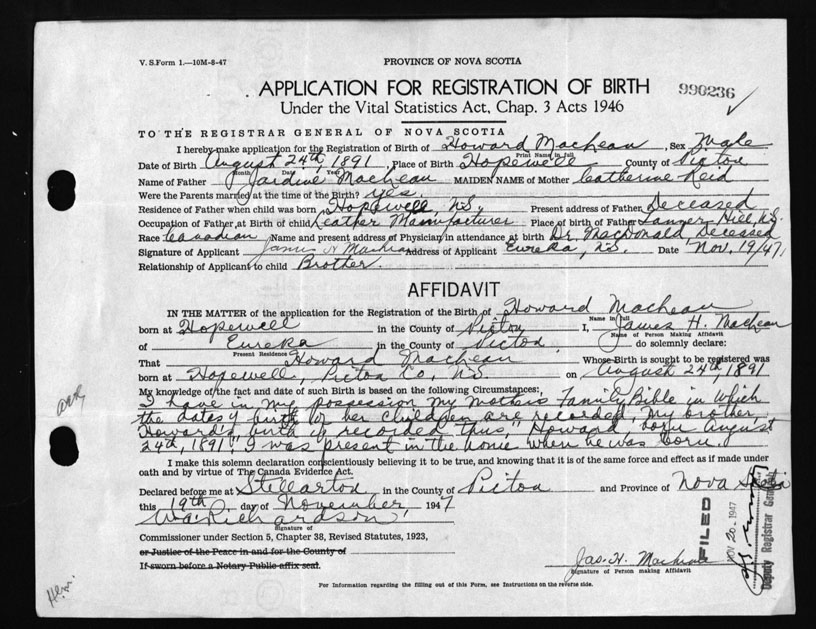 V. S. Form 1.—10M-8-47
PROVINCE OF NOVA SCOTIA
APPLICATION FOR REGISTRATION OF BIRTH
990236
Under the Vital Statistics Act, Chap. 3 Acts 1946
TO THE REGISTRAR GENERAL OF NOVA SCOTIA
I hereby make application for the Registration of Birth of Howard MacLean, Sex Male
Print Name in full
Date of Birth August 24th, 1891, Place of Birth Hopewell County of Pictou
Month Date Year
Name of Father Jardine MacLean MAIDEN NAME of Mother Catherine Reid
Were the Parents married at the time of the Birth? yes.
Residence of Father when child was born Hopewell, N.S. Present address of Father Deceased
Occupation of Father at Birth of child Leather Manufacturer Place of birth of Father Tanner Hill, N.S.
Race Canadian Name and present address of Physician in attendance at birth Dr. MacDonald Deceased
Signature of Applicant James H MacLean Address of Applicant Eureka, N.S. Date Nov. 19/47.
Relationship of Applicant to child Brother.
AFFIDAVIT
IN THE MATTER of the application for the Registration of the Birth of Howard MacLean
Name in full
born at Hopewell in the County of Pictou I, James H. MacLean
Name of Person Making Affidavit
of Eureka in the County of Pictou do solemnly declare:
Present Residence
That Howard MacLean Whose Birth is sought to be registered was
born at Hopewell, Pictou Co., N.S. on August 24th, 1891
My knowledge of the fact and date of such Birth is based on the following Circumstances:
I have in my possession my mothers Family Bible in which
the dates of birth of her children are recorded. My brother
Howard's birth is recorded thus, "Howard, born August
24th, 1891". I was present in the home when he was born.
I make this solemn declaration conscientiously believing it to be true, and knowing that it is of the same force and effect as if made under
oath and by virtue of The Canada Evidence Act.
Declared before me at Stellarton in the County of Pictou and Province of Nova Scotia
this 19th day of November, 1947
W.A. Richardson
Signature of
Commissioner under Section 5, Chapter 38, Revised Statutes, 1923,
or Justice of the Peace in and for the County of
If sworn before a Notary Public affix seal.
Jas. H. MacLean
Signature of Person making Affidavit
FILED
NOV 20 1947
Deputy Registrar General
For Information regarding the filling out of this Form, see Instructions on the reverse side.